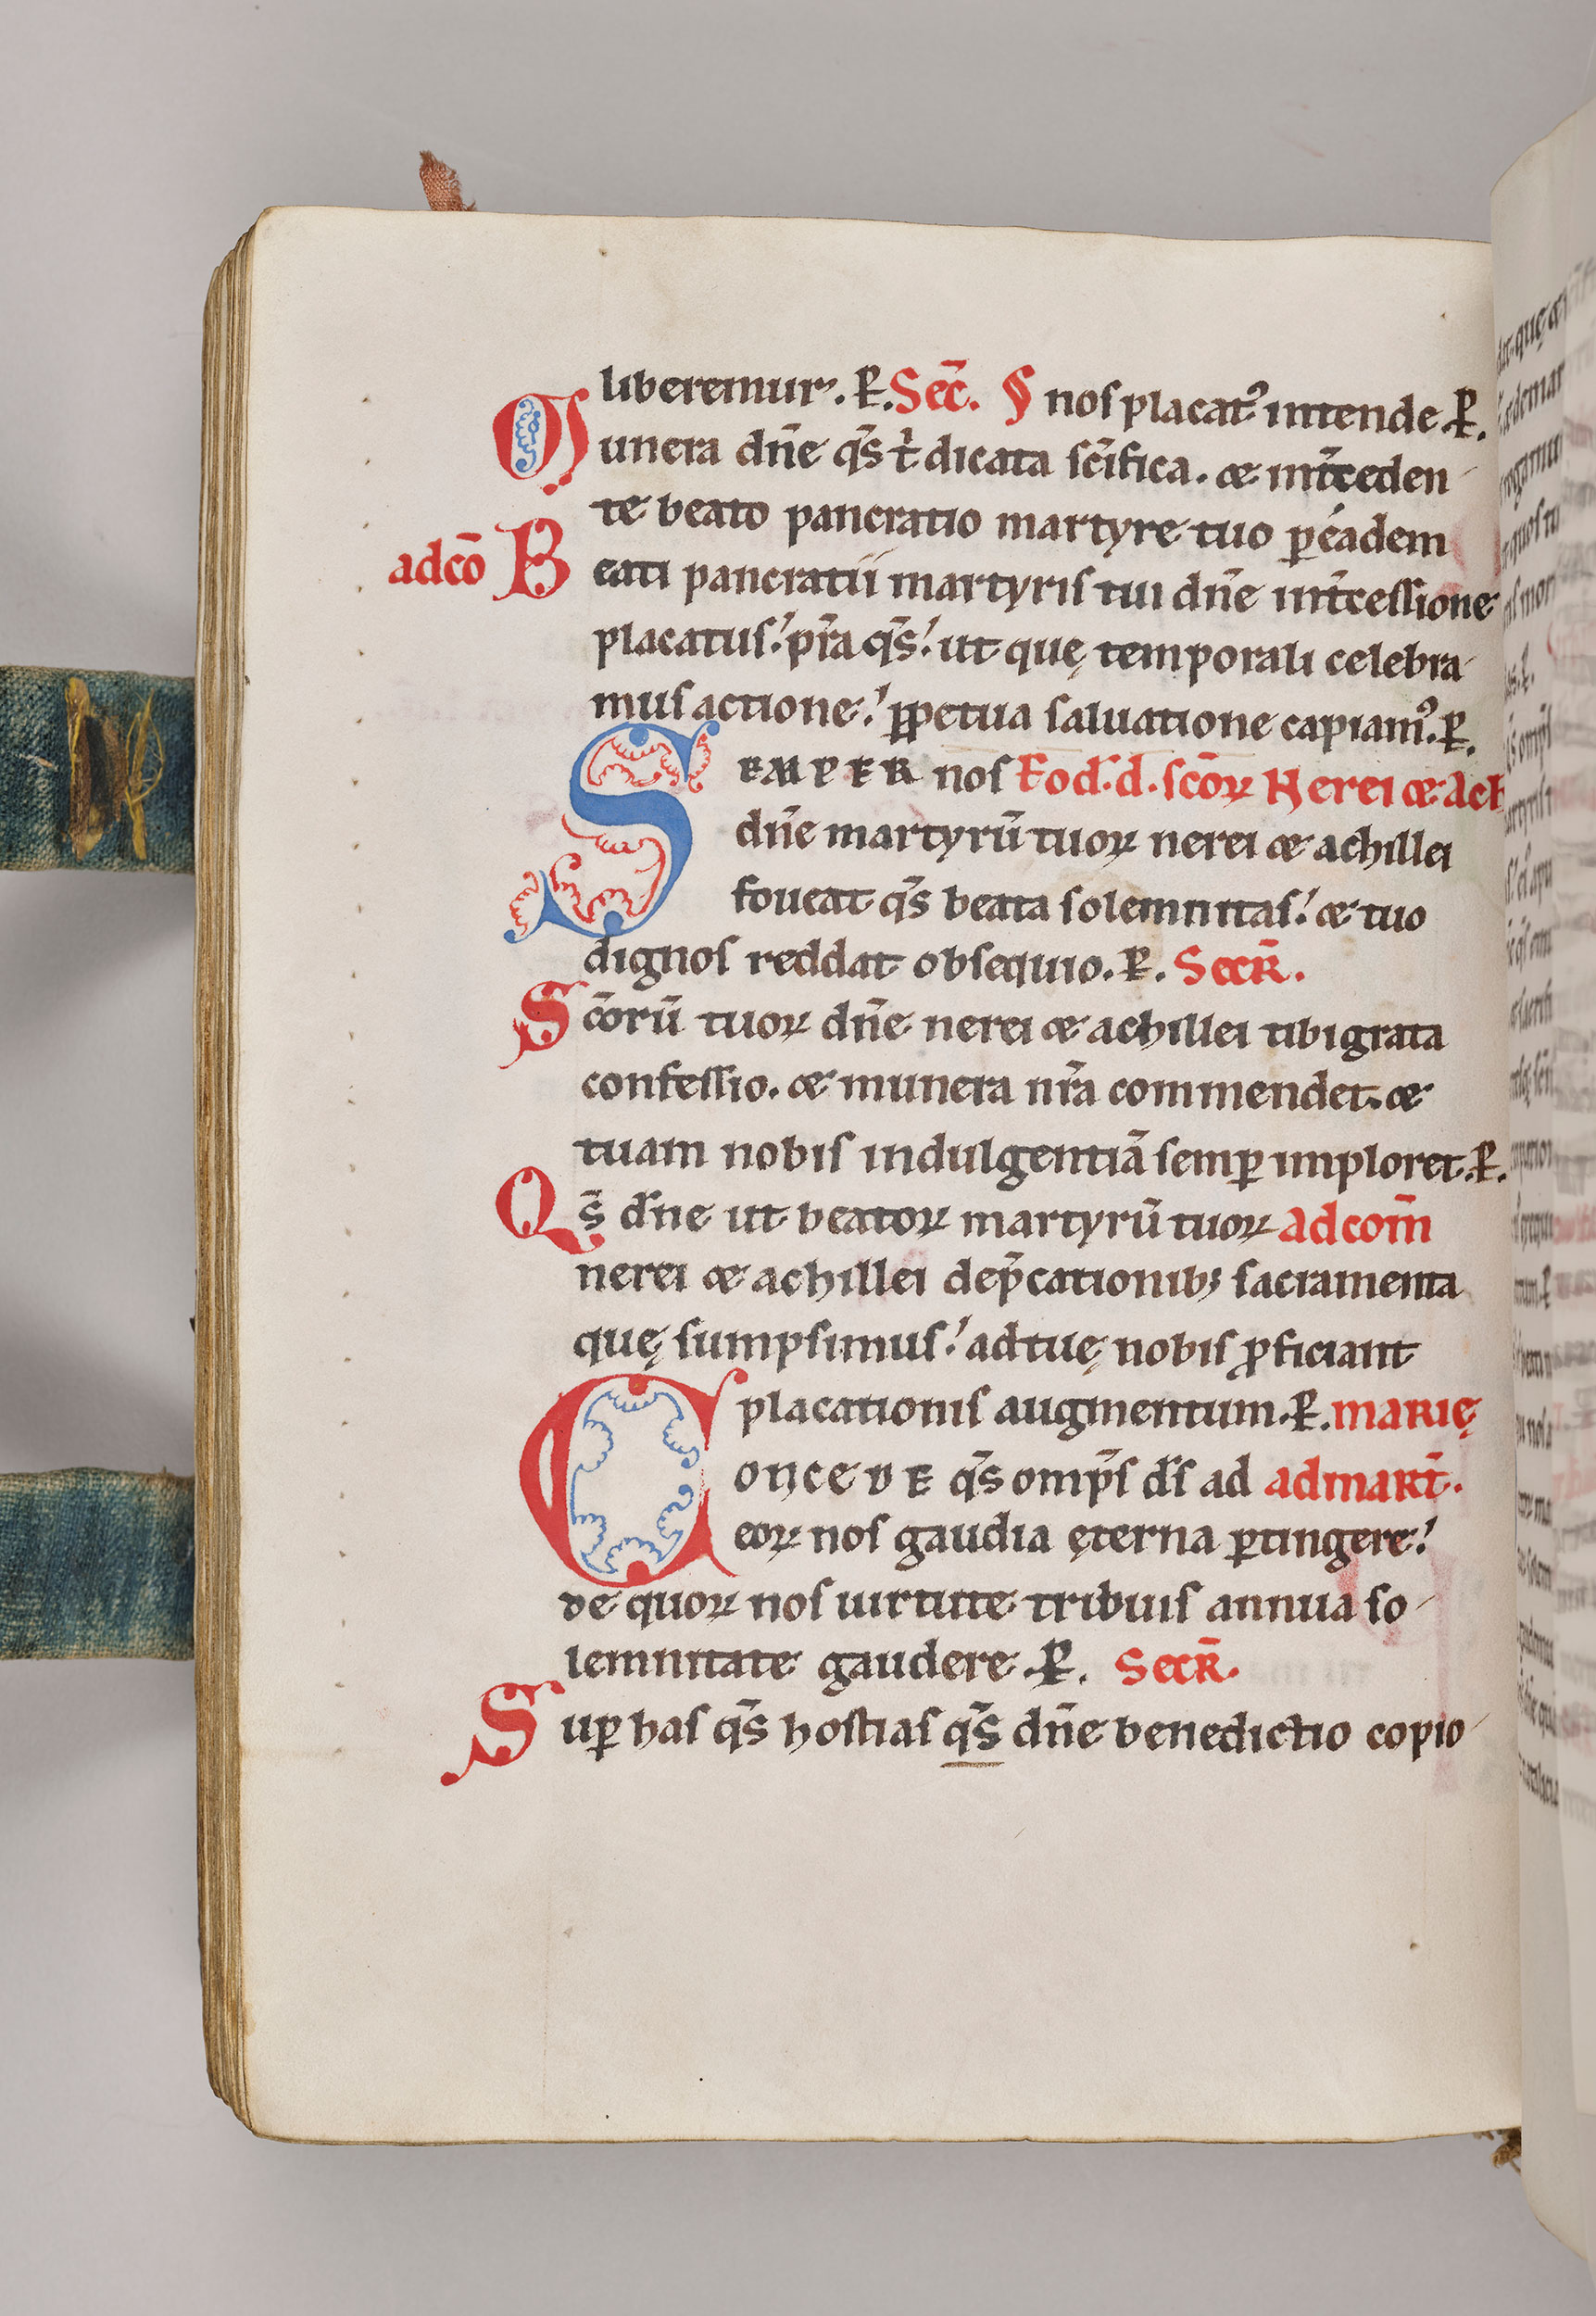 liberemur. P̲. Sec̄. § nos placat᷒ intende. P̲.
Munera dn̄e qs̄ t̄ dicata sc̄ifica. & int̄ceden
te beato pancratio martyre tuo p̲ eadem
adcō Beati pancratii martyris tui dn̄e int̄cessione
placatus! pr̄a qs̄! ut quę temporali celebra
mus actione! p̲petua saluatione capiam᷒. P̲.
SEMPER nos Eod. d. sc̄oꝝ Nerei & Ach
dn̄e martyrū tuoꝝ nerei & achillei
foueat qs̄ beata solemnitas! & tuo
dignos reddat obsequio. P̲. Secr̄.
Sc̄orū tuoꝝ dn̄e nerei & achillei tibi grata
confessio. & munera nr̄a commendet. &
tuam nobis indulgentiā semp̲ imploret. P̲.
Qs̄ dn̄e ut beatoꝝ martyrū tuoꝝ adcom̄
nerei & achillei dep̄cationib; sacramenta
quę sumpsimus! ad tuę nobis ꝓficiant
placationis augmentum. P̲. Marię
CONCEDE qs̄ omp̄s ds̄ ad ad mart̄.
eoꝝ nos gaudia ęterna ꝑtingere!
de quoꝝ nos uirtute tribuis annua so
lemnitate gaudere. P̲. Secr̄.
Sup̲ has qs̄ hostias qs̄ dn̄e benedictio copio